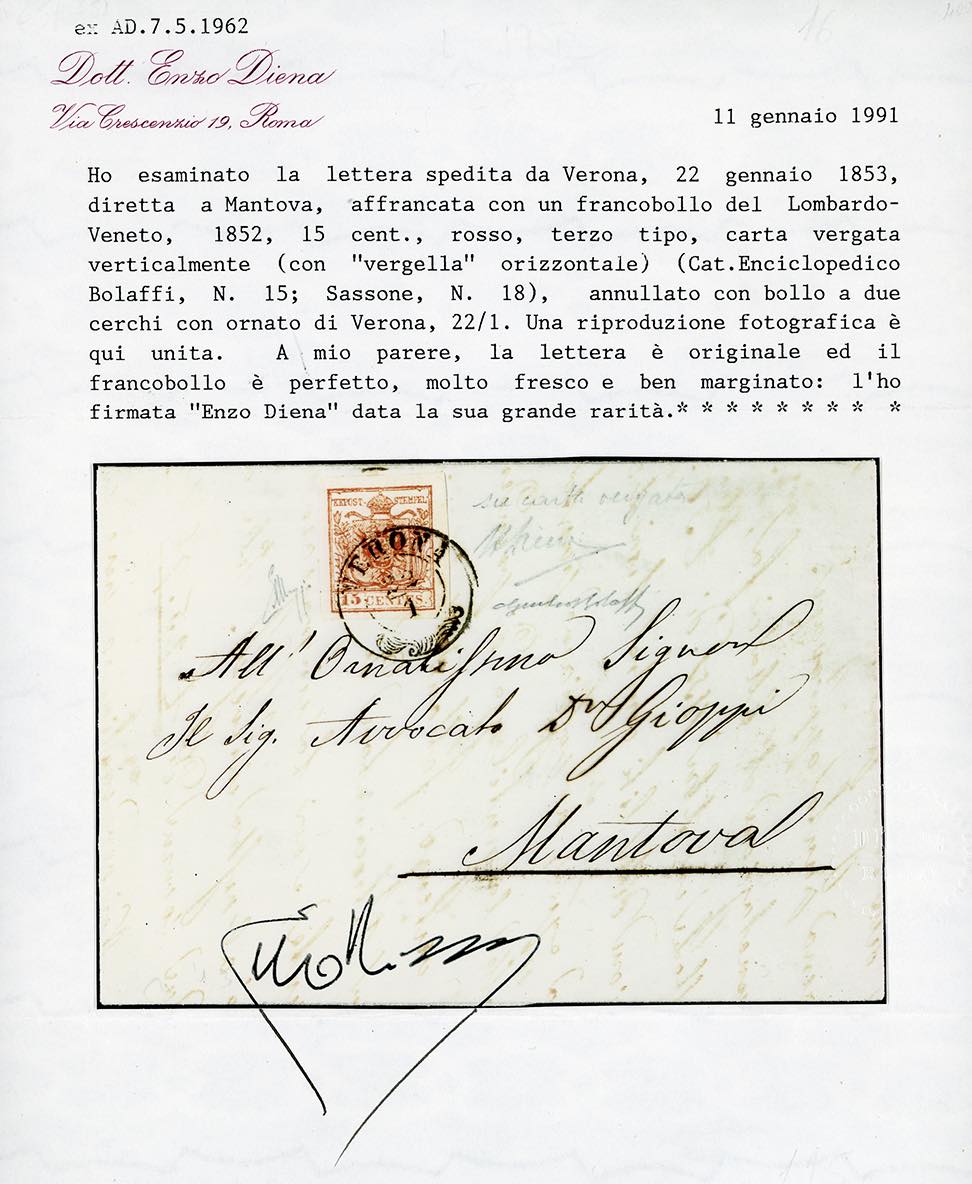 ex AD.7.5.1962
Dott. Enzo Diena
Via Crescenzio 19, Roma
11 gennaio 1991
Ho esaminato la lettera spedita da Verona, 22 gennaio 1853,
diretta a Mantova, affrancata con un francobollo del Lombardo-
Veneto, 1852, 15 cent., rosso, terzo tipo, carta vergata
verticalmente (con "vergella" orizzontale) (Cat.Enciclopedico
Bolaffi, N. 15; Sassone, N. 18), annullato con bollo a due
cerchi con ornato di Verona, 22/1. Una riproduzione fotografica è
qui unita. A mio parere, la lettera è originale ed il
francobollo è perfetto, molto fresco e ben marginato: l'ho
firmata "Enzo Diena" data la sua grande rarità.* * * * * * * * *
KKPOST-STEMPEL
VERONA
22
1
15 CENTES.
su carta vergata
All' Ornatissimo Signor
Il Sig. Avvocato Dr Gioppi
Mantova